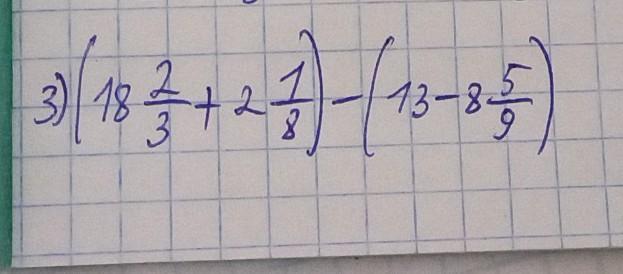 3) (18 2/3 + 2 1/8) - (13 - 8 5/9)